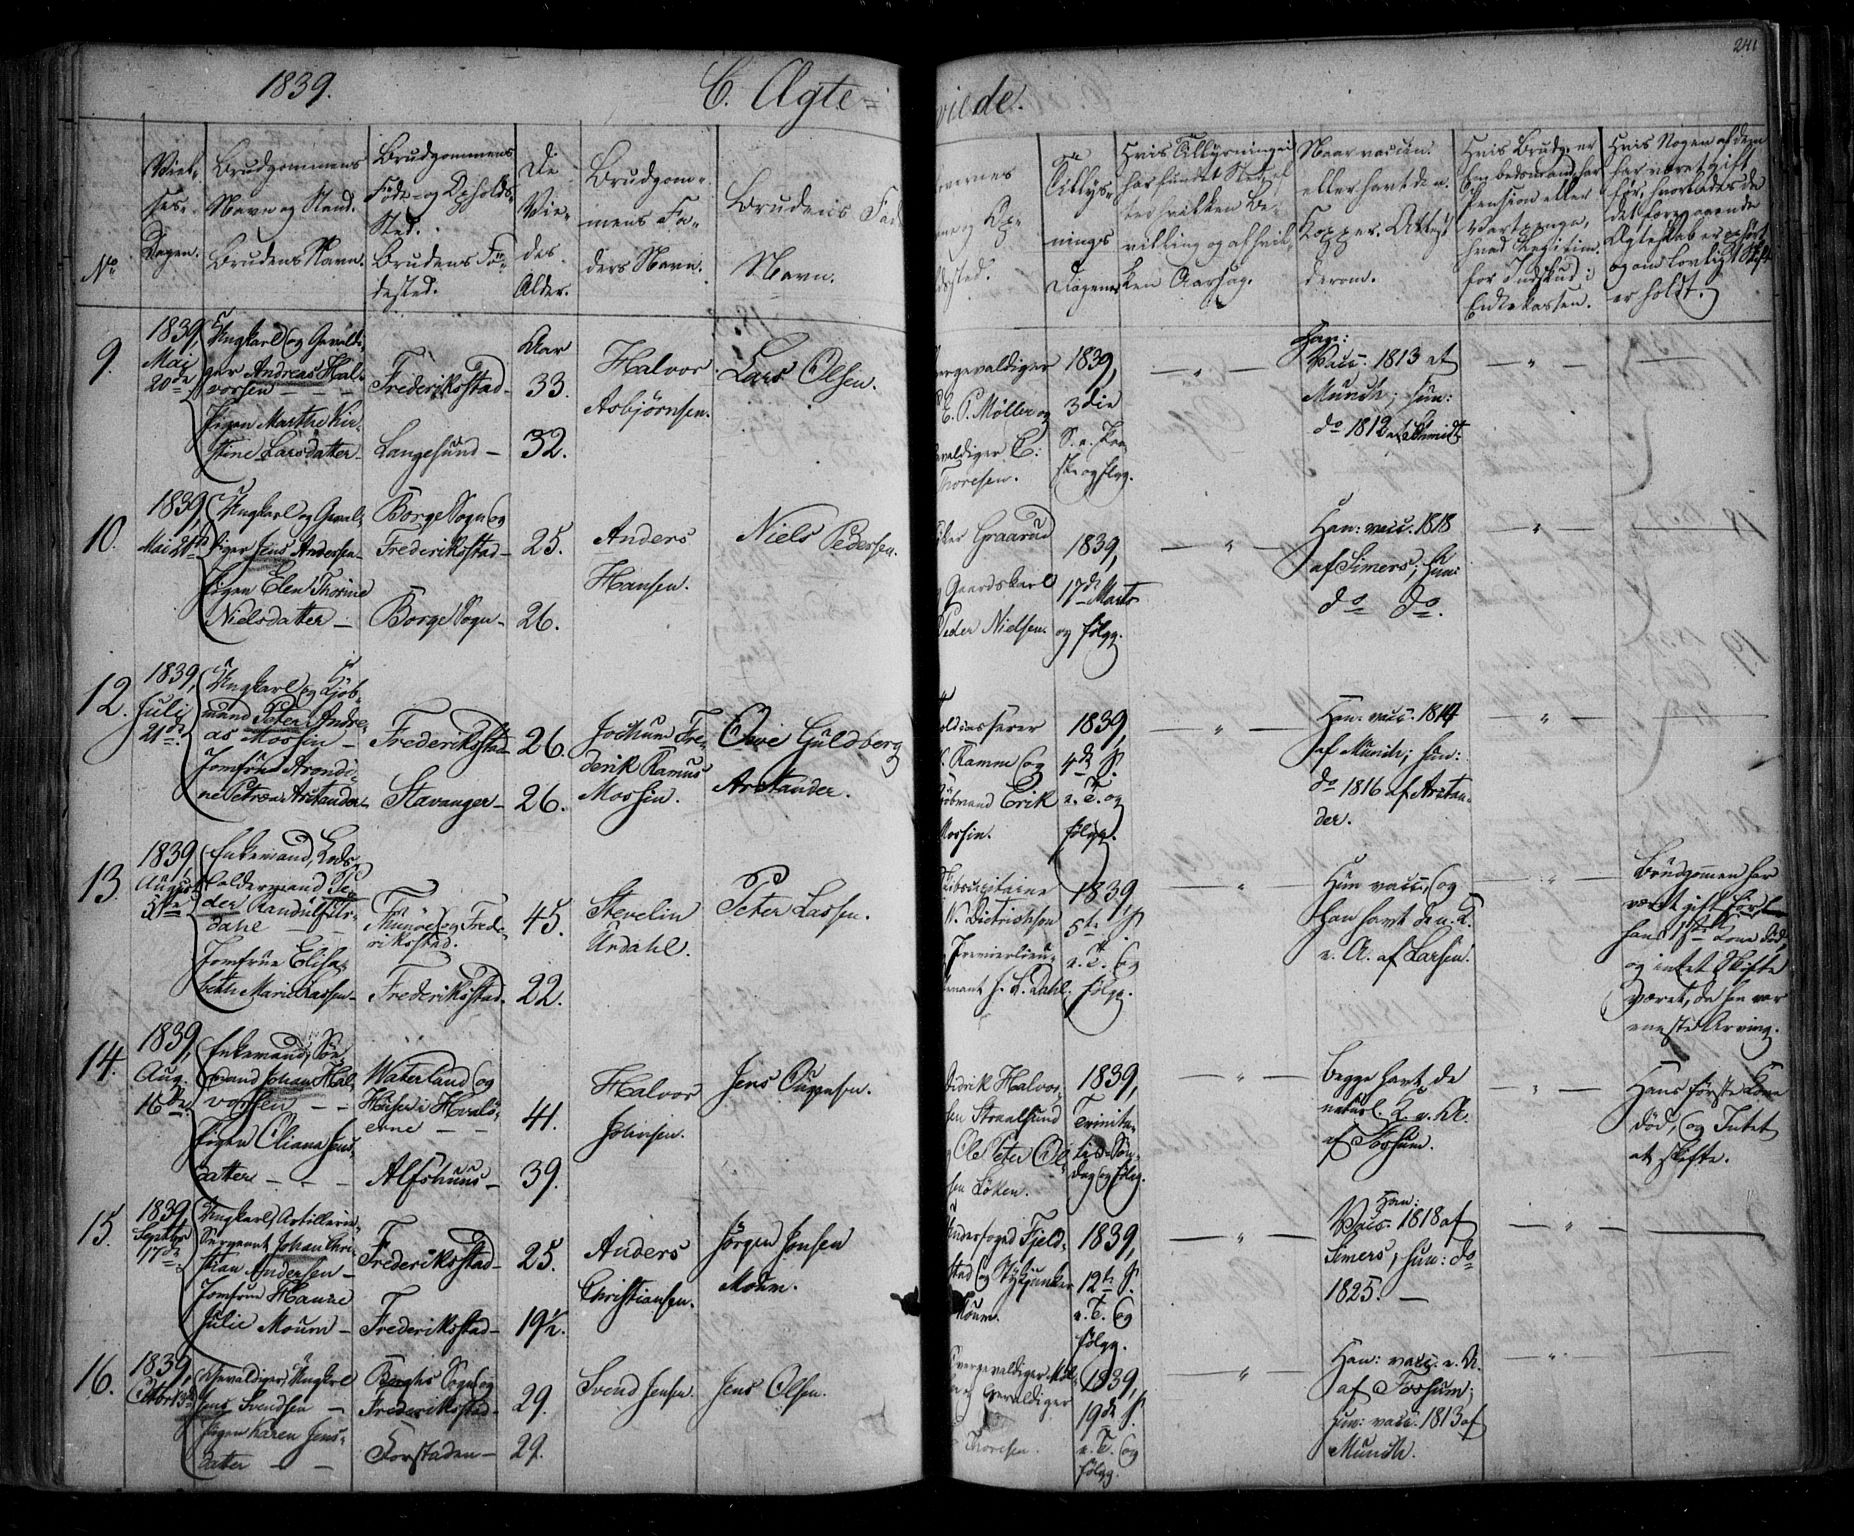 1839.
C. Ægte=
vilde.
241
No
Viel-
ses-
Dagen.
Brudgommens
Navn og Stand.
Brudens Navn.
Brudgommens
Føde- og Opholds-
Sted.
Brudens Fø-
dested.
De
Vie-
des
Alder.
Brudgom-
mens Fa-
ders Navn.
Brudens Fad
Navn.
overnes
Op-
Tillys-
nings
Dagene
Hvis Tillysning ei
har fundet Sted, ef
ter hvilken Be-
villing og af hvil-
ken Aarsag.
Naar vaccin.
eller havt de n.
Kopper. Attest
derom.
Hvis Brudg. er
Pension eller
for Indskud i
Enkekassen.
Hvis Nogen af dem
har været gift
før, hvorledes
det foregaaende
Ægteskab er ophørt
og om lovligt Skifte
er holdt.
9.
1839,
Mai
20de
Ungkarl og Gevaldi-
ger Andreas Hal-
vorsen
Pigen Marthe Kir-
stine Larsdatter
Frederiksstad
Langesund
Aar
33.
32.
Halvor
Asbjørnsen.
Lars Olsen.
vergevaldiger
P. Møller og
valdiger C:
Thoresen.
1839,
3die
S. e. Paa
ske og flgg.
Han:
Vacc. 1813 af
Münch; hun:
do 1812 af Schmidt.
10.
1839,
Mai 20de
Ungkarl og Geval-
diger Jens Andersen
Pigen Elen Thorine
Nielsdatter
Borge Sogn og
Frederiksstad
Borge Sogn
25.
26.
Anders
Hansen.
Niels Pedersen.
Graarud
Gaardskarl
Peder Nielsen.
1839,
17de Marts
og følgg.
Han: vacc. 1818
af Simers; hun:
do do.
12.
1839,
Juli
21de
Ungkarl og Kjøb-
mand Peter Andre-
as Mossin
Jomfrue Arondi-
ne Petrea Arstander
Frederiksstad
Stavanger
26.
26.
Jochum Fre-
derik Ramus
Mossin.
Ove Guldberg
Arstander.
Ramm og
Kjøbmand Erik
Mossin.
1839,
4de S.
e. T. og
følgg.
Han: vacc. 1814
af Münch; hun:
do 1816 af Arstan-
der.
13.
1839,
August
5te
Enkemand, Lods-
oldermand Pe-
der Randulf Ur-
dahl
Jomfrue Elisa-
beth Marie Lassen
Thunø og Frede-
riksstad.
Frederiksstad.
45.
22.
Stevelin
Urdahl.
Peter Lassen.
Dietrichsen
Premierlieu-
tenant Dahl.
1839,
5te S.
e. T. og
følgg.
Hun vacc., og
han havt de n. K.
e. A. af Larsen.
Brudgommen har
været gift før,
hans 1ste Kone død,
og intet Skifte
været, da han var
eneste Arving.
14.
1839,
Aug.
16de
Enkemand, Søe-
mand Johan Hal-
vorsen
Pigen Eliana Jens-
datter
Waterland og
Huser i Hvalø-
erne
Alfshuus
41.
39.
Halvor
Johnsen.
Jens Ougensen.
Didrik Halvor-
sen Straalsund
Ole Peter Ol-
sen Løken.
1839,
Trinita-
tis Søn-
dag og følg.
begge havt de
naturl. K. e. A.
af Fossum.
Hans første Kone
død, og Intet
at skifte.
15.
1839,
Septbr
17de
Ungkarl, Artillerie-
Sergeant Johan Chri-
stian Andersen
Jomfrue Hanne
Julie Moum
Frederiksstad
Frederiksstad
25.
19½.
Anders
Christiansen.
Jørgen Jensen
Moum.
Underfoged Fjeld-
stad og Stykjunker
Moum.
1839,
12te S.
e. T. og
følgg.
Han:
Vacc. 1818 af
Simers; hun: do
1825.
16.
1839,
Octbr 13de
Gevaldiger, Ungkarl
Jens Svendsen
Pigen Karen Jens-
datter
Borges Sogn og
Frederiksstad
Forstaden
29.
29.
Svend Jensen.
Jens Olsen.
Overgevaldiger
og Gevaldiger
Thoresen.
1839,
19de S.
e. T. og
følgg.
Han: vacc. e. A.
af Fossum;
hun: vacc. 1813 af
Münch.